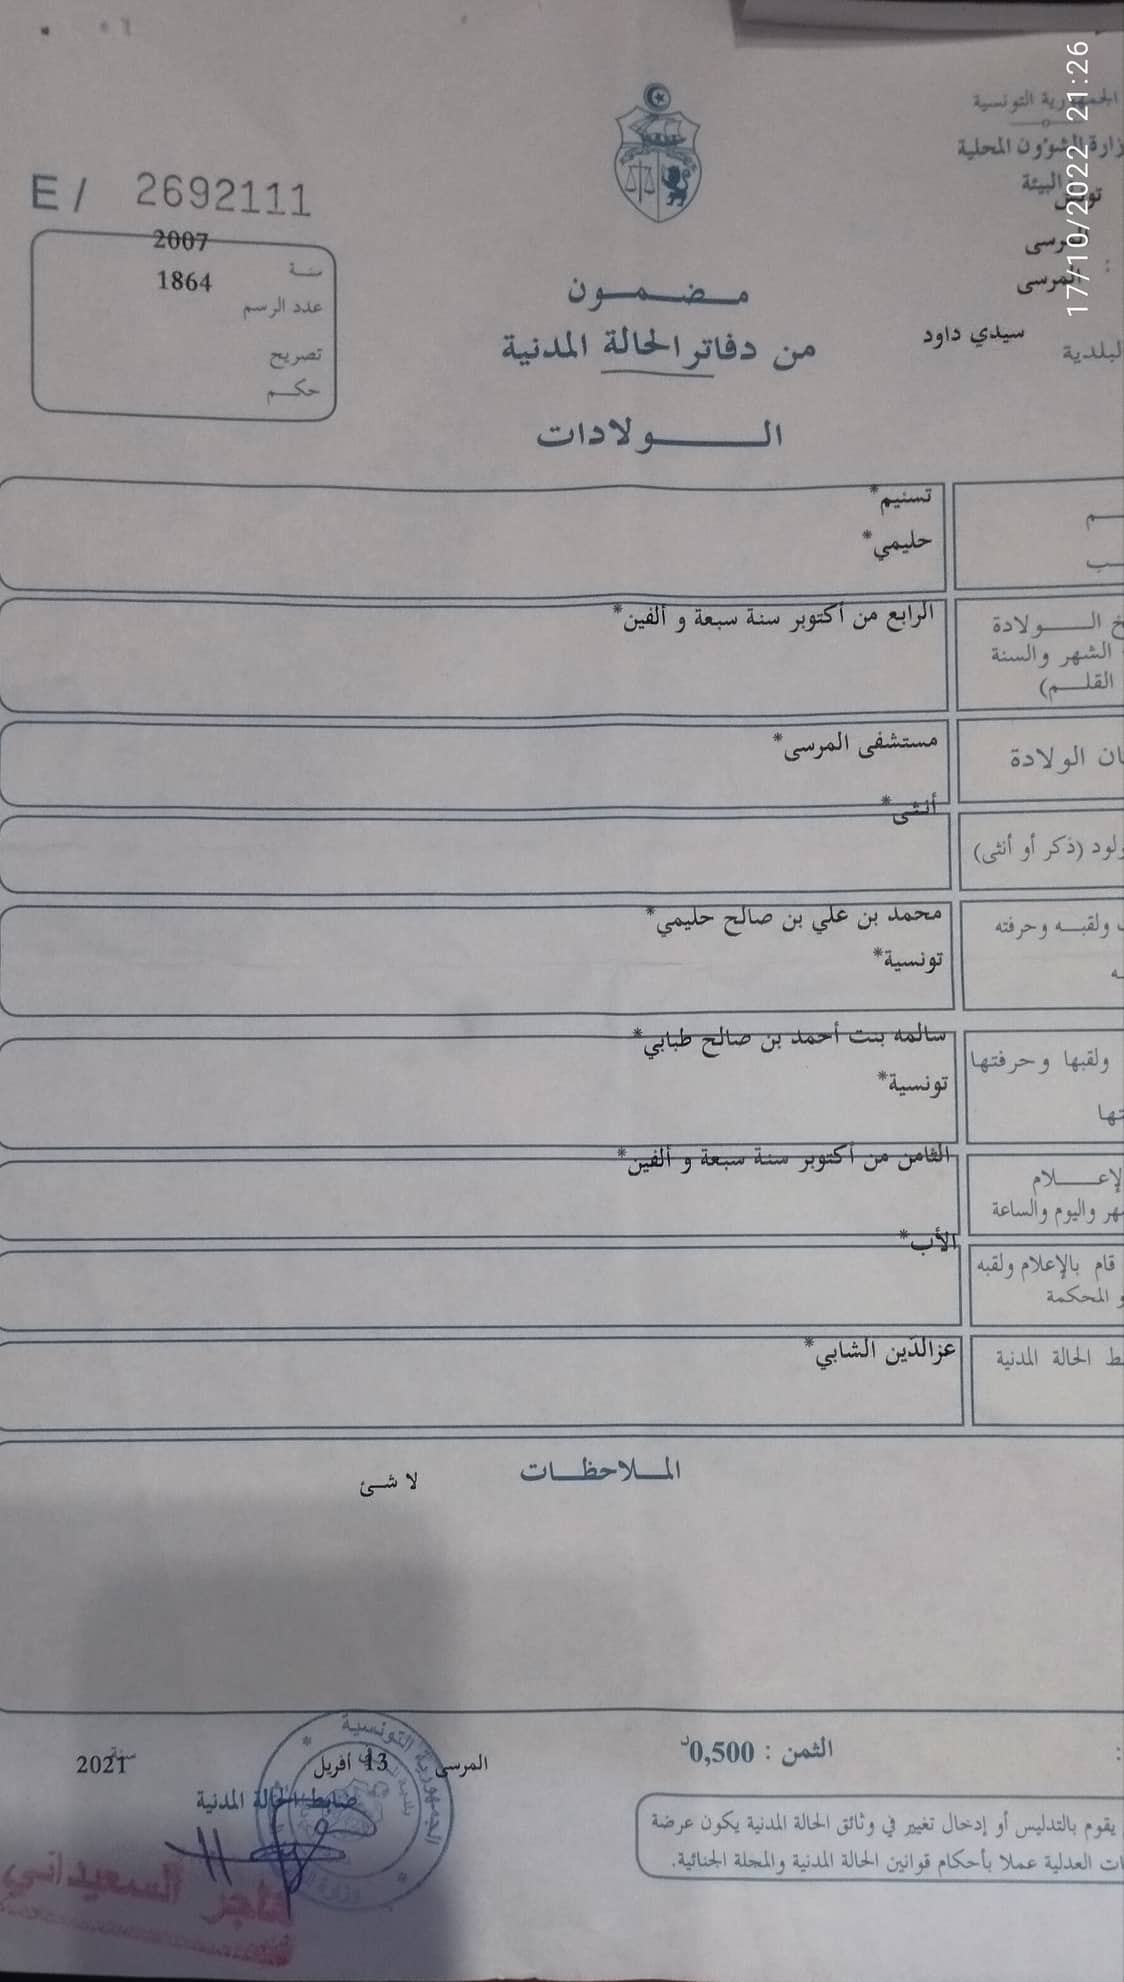 17/10/2022 21:26
الجمهورية التونسية
وزارة الشؤون المحلية
البيئة
تونس
المرسى
المرسى
البلدية سيدي داود
E / 2692111
سنة 2007
عدد الرسم 1864
تصريح
حكم
مضمون
من دفاتر الحالة المدنية
الولادات
تسنيم*
حليمي*
خ الولادة
الشهر والسنة
القلم)
الرابع من أكتوبر سنة سبعة و ألفين*
ان الولادة
مستشفى المرسى*
ولود (ذكر أو أنثى)
أنثى*
ولقبه وحرفته
محمد بن علي بن صالح حليمي*
تونسية*
ولقبها وحرفتها
تها
سالمه بنت أحمد بن صالح طبابي*
تونسية*
لإعلام
هر واليوم والساعة
الثامن من أكتوبر سنة سبعة و ألفين*
قام بالإعلام ولقبه
و المحكمة
الأب*
ط الحالة المدنية
عزالدّين الشابي*
الملاحظات
لا شئ
الثمن : 0,500د
المرسى 13 أفريل سنة 2021
ضابط الحالة المدنية
الجمهورية التونسية
يقوم بالتدليس أو إدخال تغيير في وثائق الحالة المدنية يكون عرضة
ات العدلية عملا بأحكام قوانين الحالة المدنية والمجلة الجنائية.
السعيداني